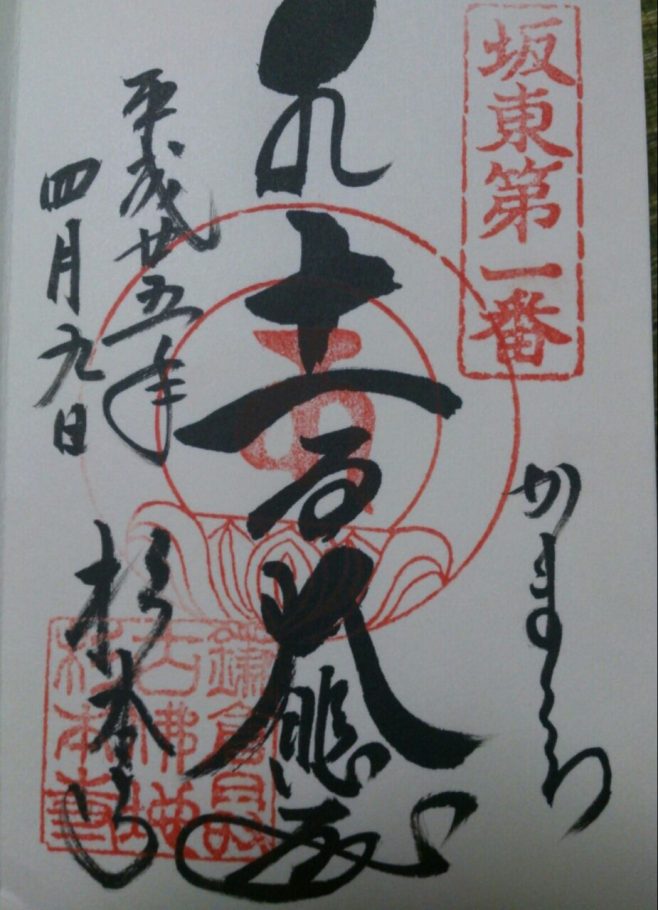 坂東第一番
かまくら
十一面大悲殿
平成廿五年
四月九日
杉本寺
鎌倉最
古佛地
杉本寺